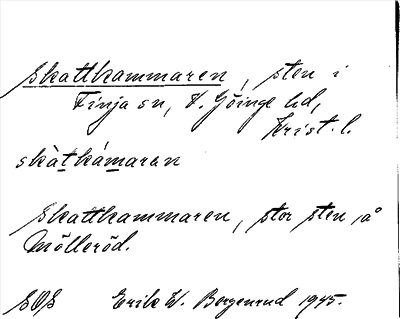 Skattkammaren, sten i
Finja sn, V. Göinge hd,
Krist. l.
skàtkámaran
Skattkammaren, stor sten på
Mölleröd.
SOS Erik W. Bergenrud 1945.